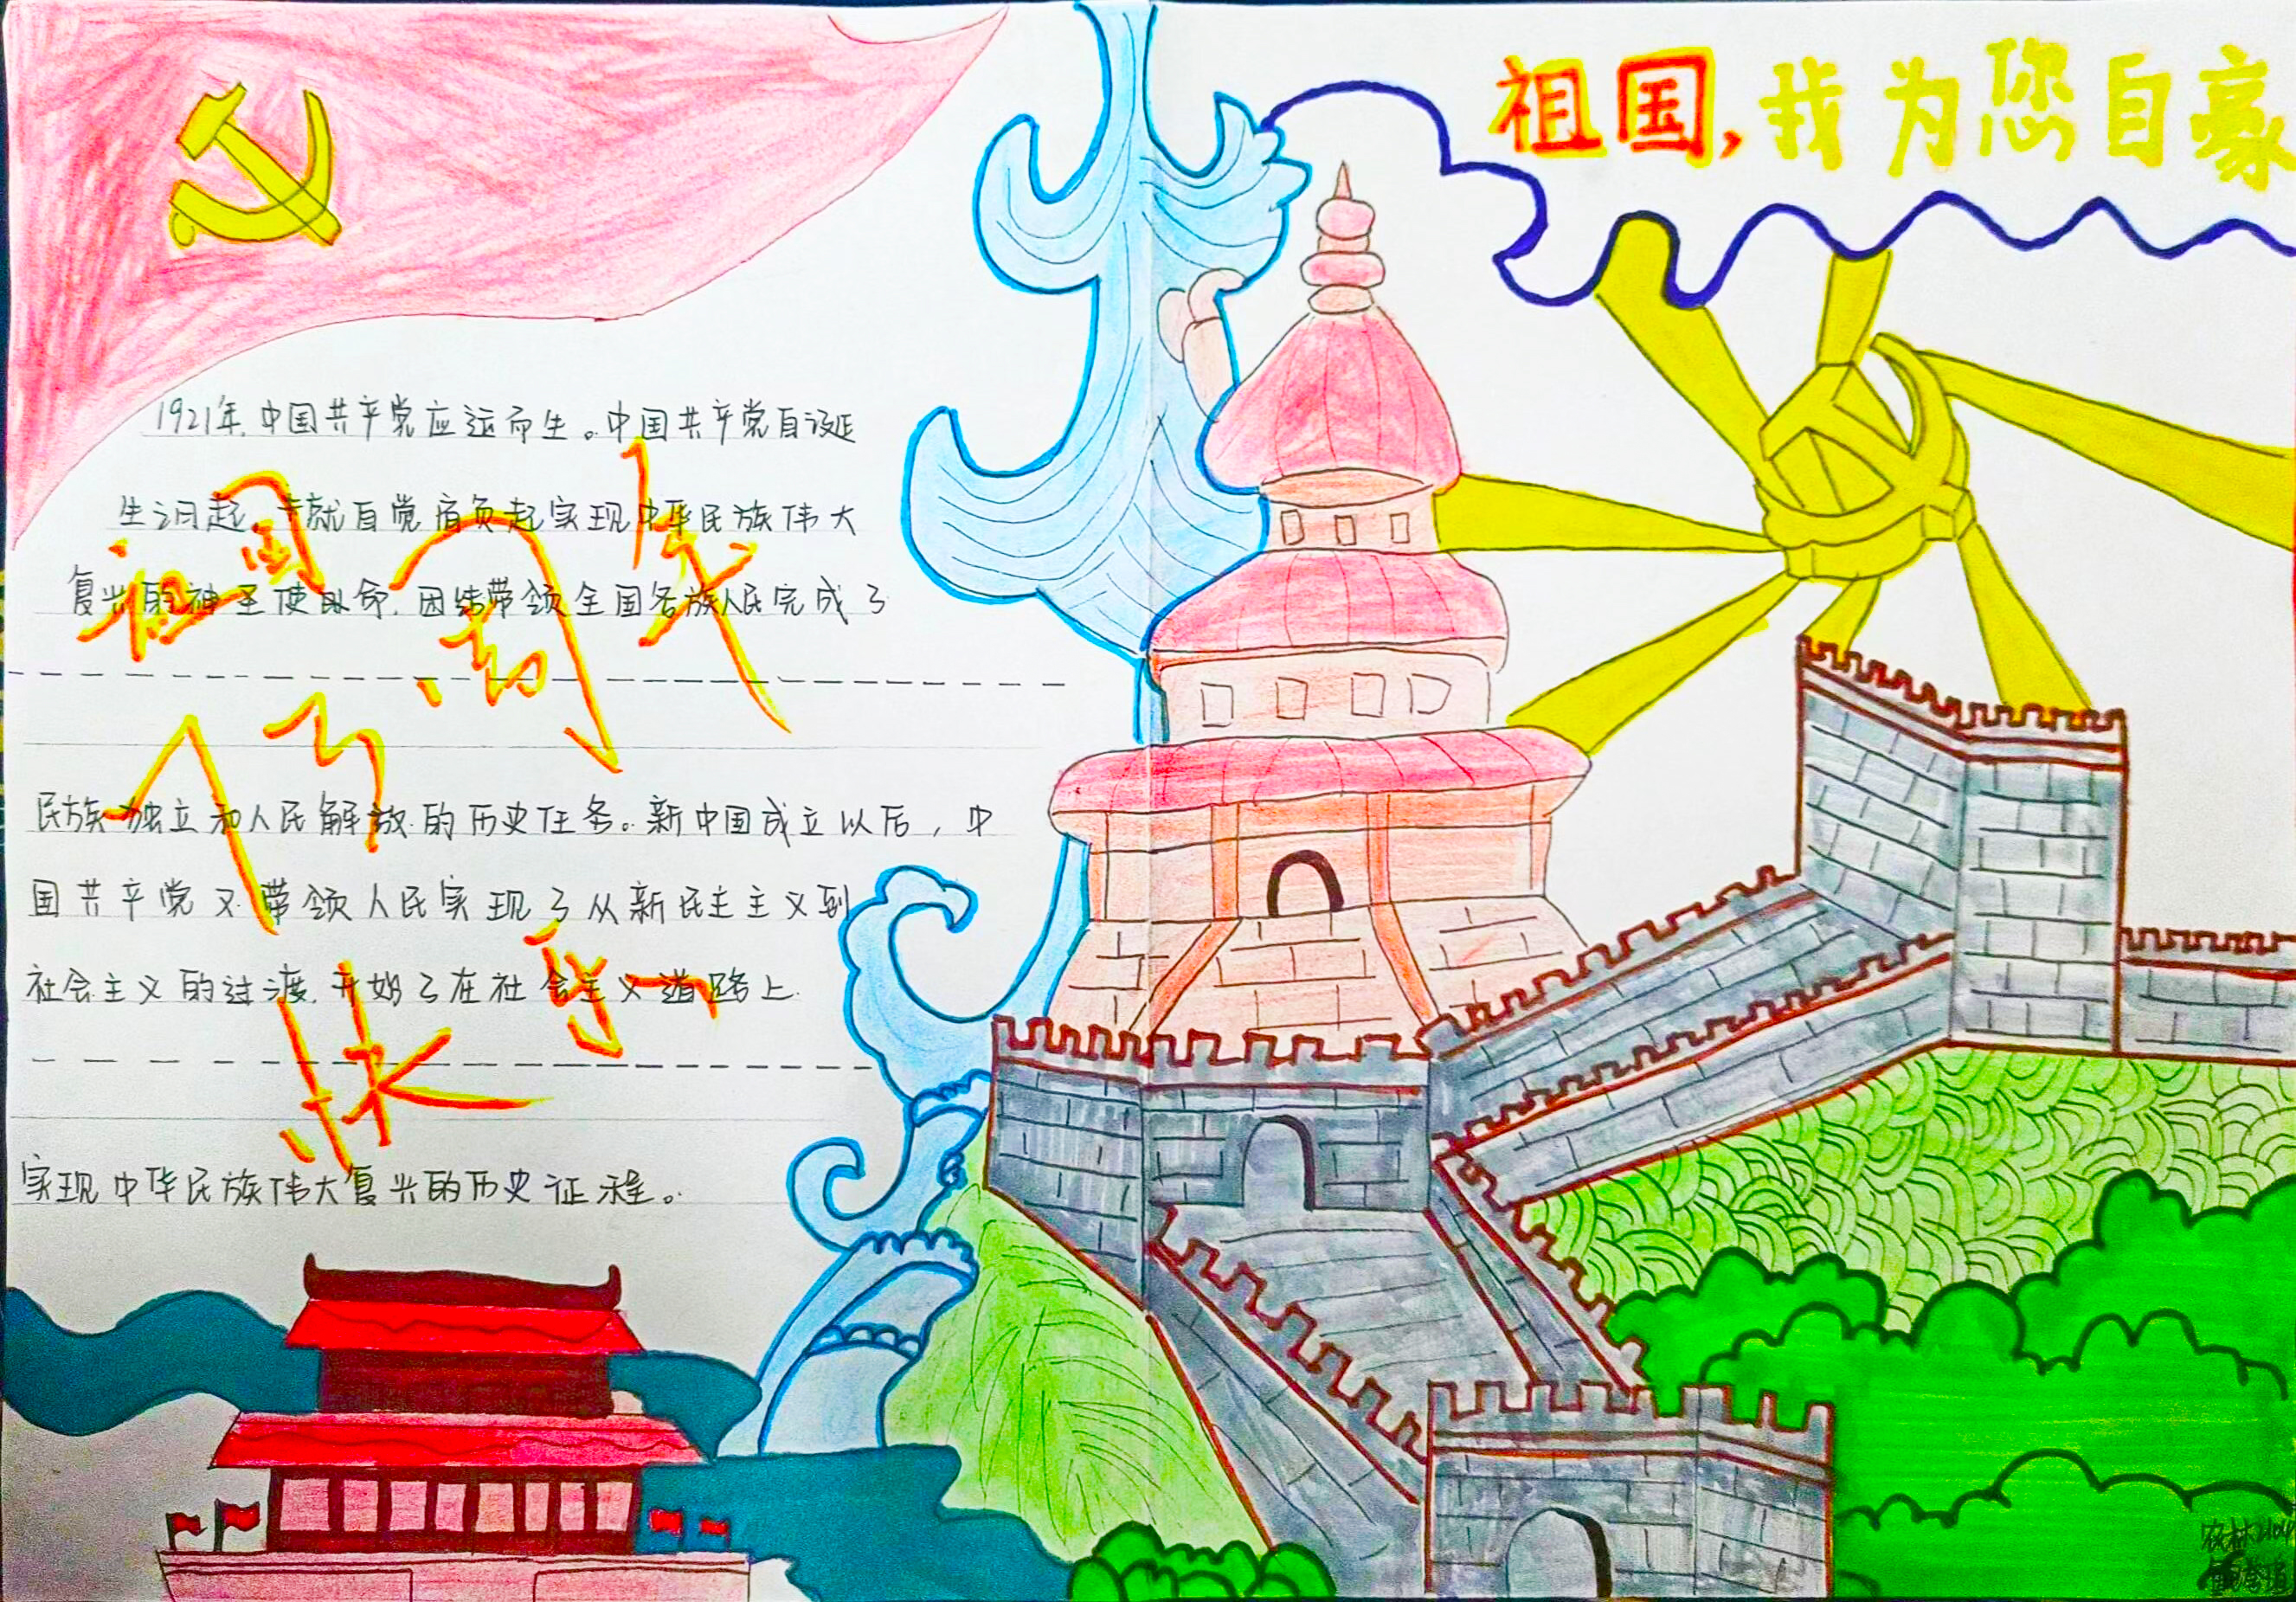 祖国,我为您自豪
1921年,中国共产党应运而生。中国共产党自诞
生之日起,就自觉肩负起实现中华民族伟大
复兴的神圣使命,团结带领全国各族人民完成了
民族独立和人民解放的历史任务。新中国成立以后,中
国共产党又带领人民实现了从新民主主义到
社会主义的过渡,开始了在社会主义道路上
实现中华民族伟大复兴的历史征程。
祖国
农林